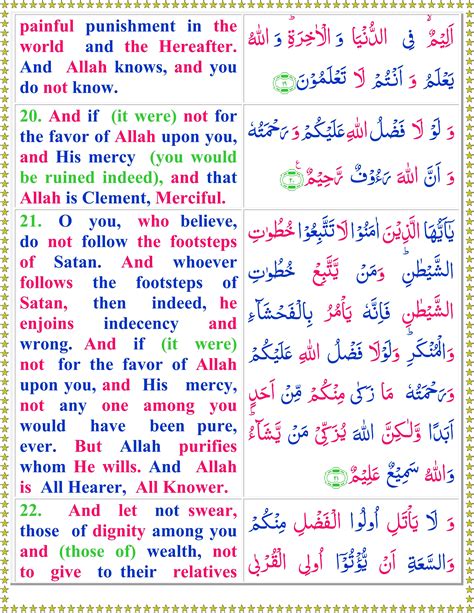 painful punishment in the
world and the Hereafter.
And Allah knows, and you
do not know.
اَلِيْمٌ ۙ فِى الدُّنْيَا وَ الْاٰخِرَةِ ؕ وَ اللّٰهُ
يَعْلَمُ وَ اَنْتُمْ لَا تَعْلَمُوْنَ ۝۱۹
20. And if (it were) not for
the favor of Allah upon you,
and His mercy (you would
be ruined indeed), and that
Allah is Clement, Merciful.
وَ لَوْ لَا فَضْلُ اللّٰهِ عَلَيْكُمْ وَ رَحْمَتُهٗ
وَ اَنَّ اللّٰهَ رَءُوْفٌ رَّحِيْمٌ ۝۲۰
21. O you, who believe,
do not follow the footsteps
of Satan. And whoever
follows the footsteps of
Satan, then indeed, he
enjoins indecency and
wrong. And if (it were)
not for the favor of Allah
upon you, and His mercy,
not any one among you
would have been pure,
ever. But Allah purifies
whom He wills. And Allah
is All Hearer, All Knower.
يٰۤاَيُّهَا الَّذِيْنَ اٰمَنُوْا لَا تَتَّبِعُوْا خُطُوٰتِ
الشَّيْطٰنِ ؕ وَمَنْ يَّتَّبِعْ خُطُوٰتِ
الشَّيْطٰنِ فَاِنَّهٗ يَاْمُرُ بِالْفَحْشَآءِ
وَ الْمُنْكَرِ ؕ وَلَوْلَا فَضْلُ اللّٰهِ عَلَيْكُمْ
وَرَحْمَتُهٗ مَا زَكٰى مِنْكُمْ مِّنْ اَحَدٍ
اَبَدًا ۙ وَّلٰكِنَّ اللّٰهَ يُزَكِّىْ مَنْ يَّشَآءُ ؕ
وَاللّٰهُ سَمِيْعٌ عَلِيْمٌ ۝۲۱
22. And let not swear,
those of dignity among you
and (those of) wealth, not
to give to their relatives
وَ لَا يَاْتَلِ اُولُوا الْفَضْلِ مِنْكُمْ
وَ السَّعَةِ اَنْ يُّؤْتُوْۤا اُولِى الْقُرْبٰى